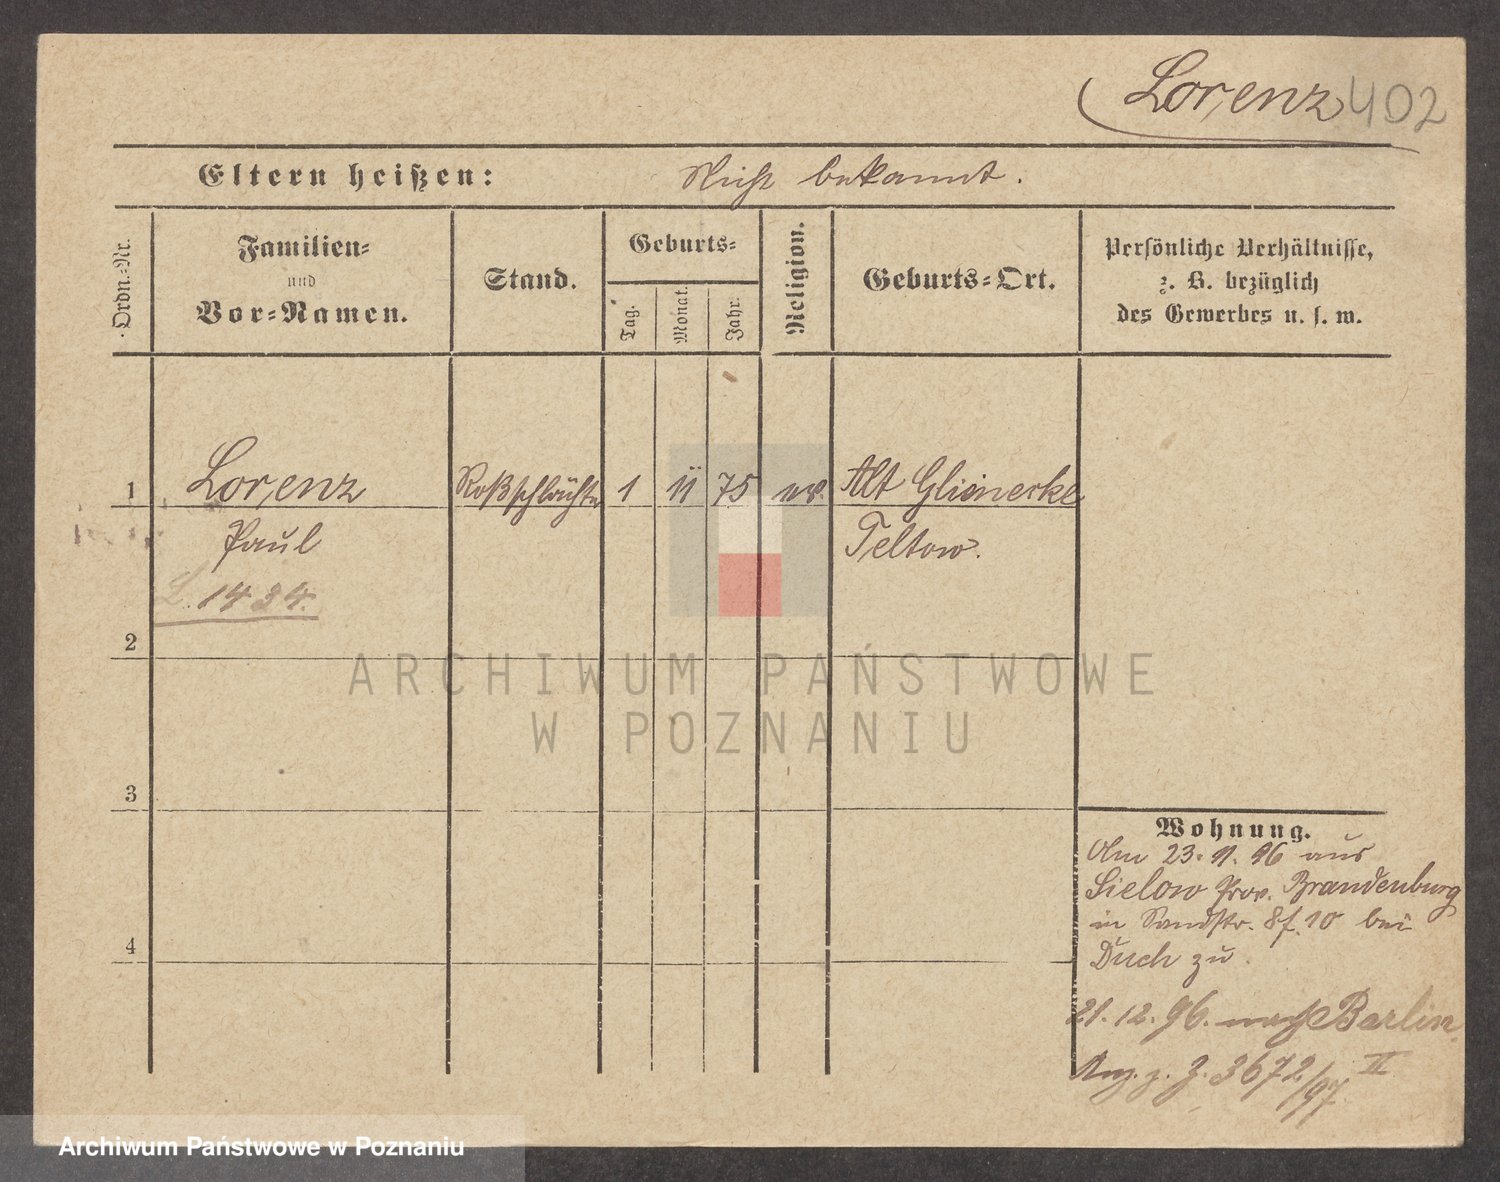 Lorenz 402
Eltern heißen: Nicht bekannt.
Ordn.-Nr.
Familien-
und
Vor-Namen.
Stand.
Geburts-
Tag.
Monat.
Jahr.
Religion.
Geburts-Ort.
Persönliche Verhältnisse,
z. B. bezüglich
des Gewerbes u. s. w.
1 Lorenz Roßschlächter 1 11 75 ev. Alt Glienecke
Paul Teltow.
L. 1434.
2
ARCHIWUM PAŃSTWOWE
W POZNANIU
3
Wohnung.
Am 23. 11. 96 aus
Sielow Prov. Brandenburg
in Sandstr. 8 f. 10 bei
Duch zu.
4
21. 12. 96. nach Berlin
3672/97 II
Archiwum Państwowe w Poznaniu